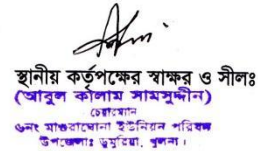 স্থানীয় কর্তৃপক্ষের স্বাক্ষর ও সীলঃ
(আবুল কালাম সামসুদ্দীন)
চেয়ারম্যান
৬নং মাগুরাঘোনা ইউনিয়ন পরিষদ
উপজেলাঃ ডুমুরিয়া, খুলনা।